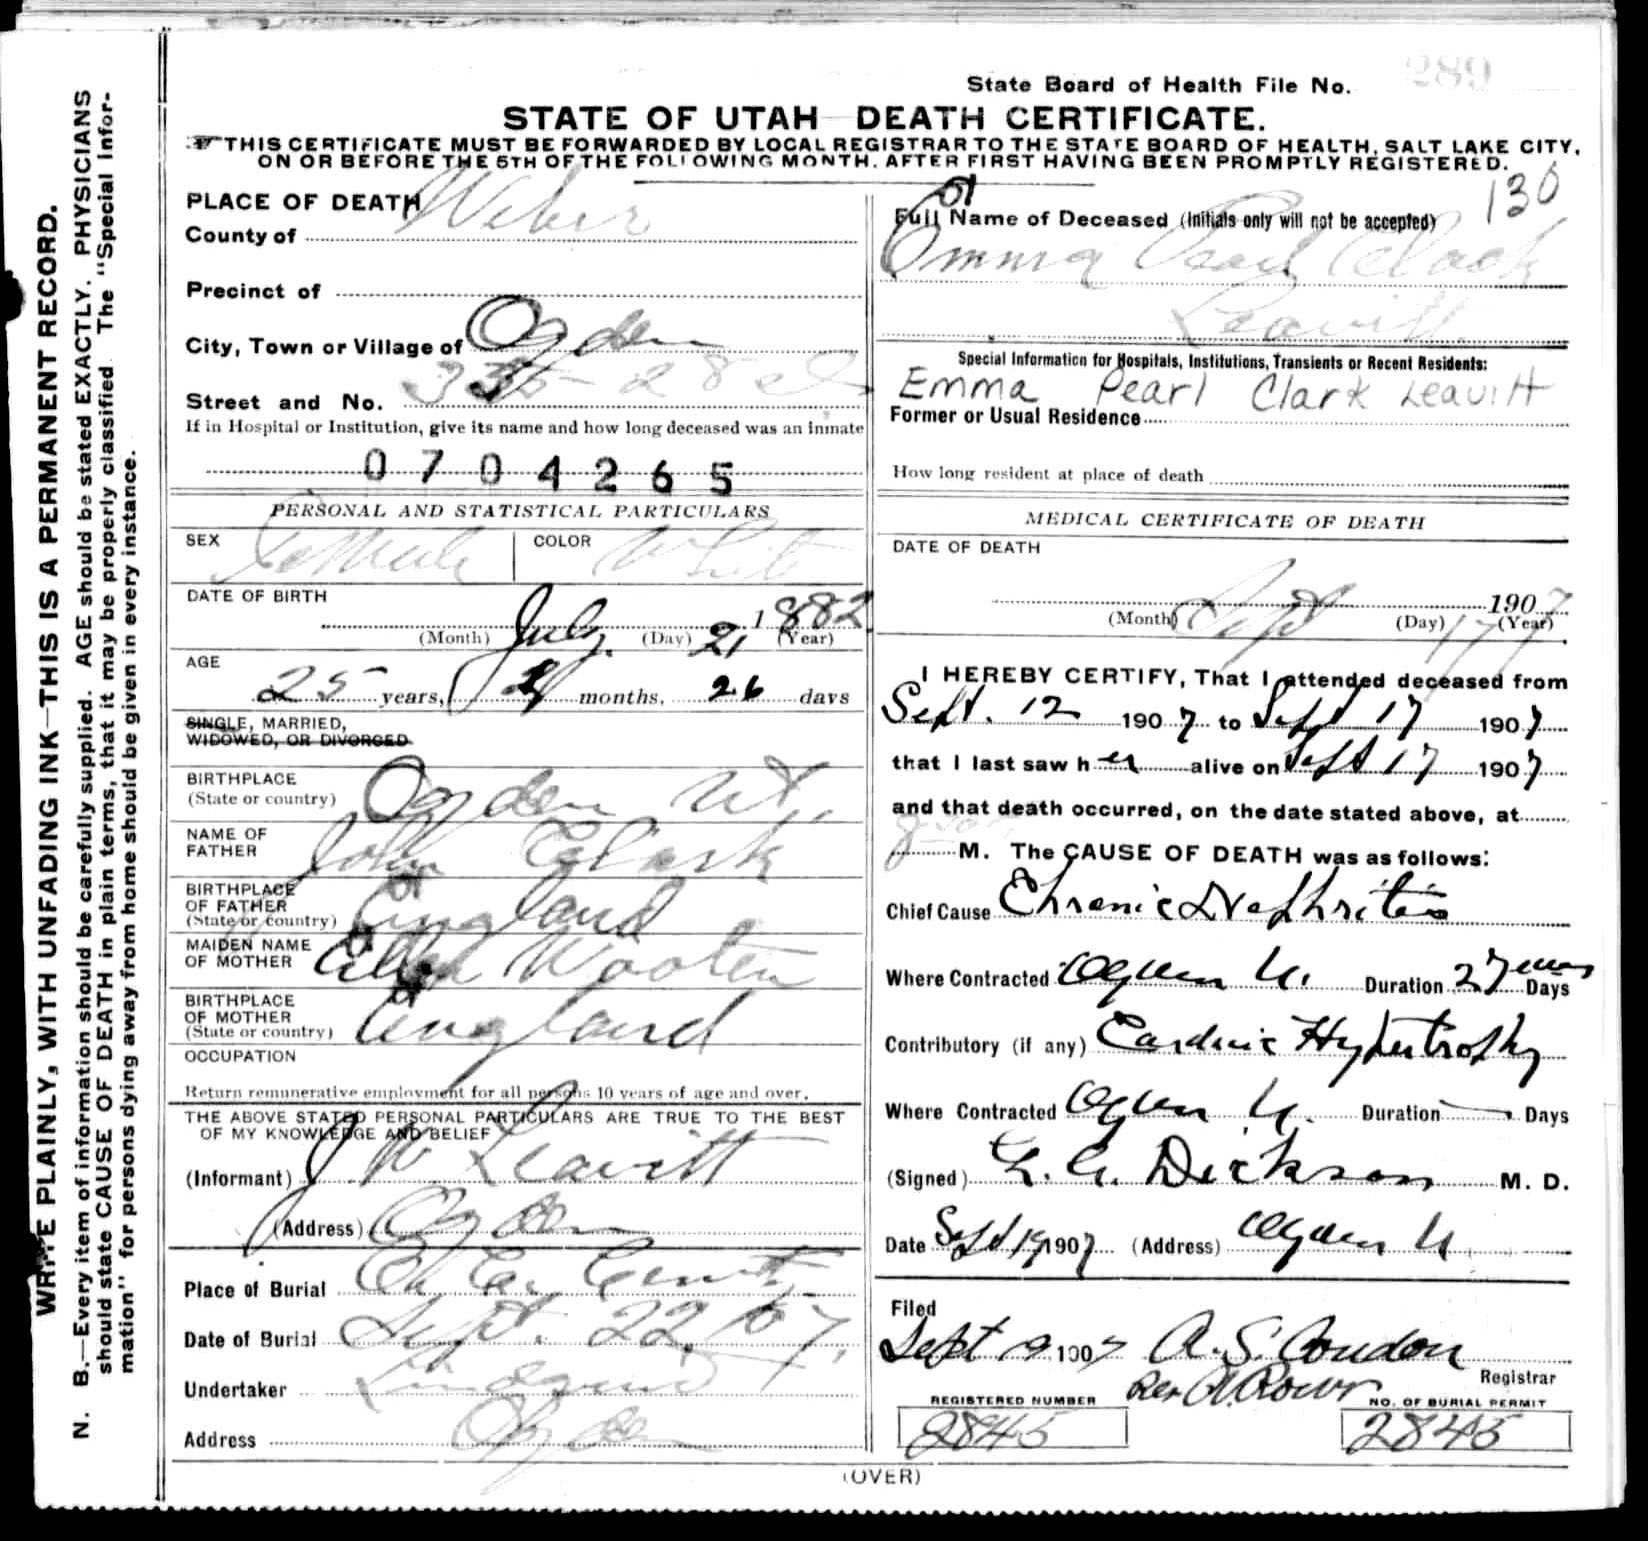 State Board of Health File No. 289
STATE OF UTAH DEATH CERTIFICATE.
THIS CERTIFICATE MUST BE FORWARDED BY LOCAL REGISTRAR TO THE STATE BOARD OF HEALTH, SALT LAKE CITY,
ON OR BEFORE THE 5TH OF THE FOLLOWING MONTH, AFTER FIRST HAVING BEEN PROMPTLY REGISTERED.
WRITE PLAINLY, WITH UNFADING INK—THIS IS A PERMANENT RECORD.
N. B.—Every item of information should be carefully supplied. AGE should be stated EXACTLY. PHYSICIANS
should state CAUSE OF DEATH in plain terms, that it may be properly classified The "Special Infor-
mation" for persons dying away from home should be given in every instance.
PLACE OF DEATH
County of Weber
Precinct of
City, Town or Village of Ogden
Street and No. 335 - 28
If in Hospital or Institution, give its name and how long deceased was an inmate
0 7 0 4 2 6 5
PERSONAL AND STATISTICAL PARTICULARS
SEX Female COLOR White
DATE OF BIRTH
July 21 1882
(Month) (Day) (Year)
AGE
25 years, months, 26 days
SINGLE, MARRIED,
WIDOWED, OR DIVORCED
BIRTHPLACE
(State or country) Ogden Ut.
NAME OF
FATHER John Clark
BIRTHPLACE
OF FATHER
(State or country) England
MAIDEN NAME
OF MOTHER Ellen Wooten
BIRTHPLACE
OF MOTHER
(State or country) England
OCCUPATION
Return remunerative employment for all persons 10 years of age and over.
THE ABOVE STATED PERSONAL PARTICULARS ARE TRUE TO THE BEST
OF MY KNOWLEDGE AND BELIEF
(Informant) J W Leavitt
(Address) Ogden
Place of Burial
Date of Burial Sept. 22, 07.
Undertaker Lindquist
Address Ogden
(OVER)
130
Full Name of Deceased (Initials only will not be accepted)
Emma Pearl Clark
Leavitt
Special Information for Hospitals, Institutions, Transients or Recent Residents:
Emma Pearl Clark Leavitt
Former or Usual Residence
How long resident at place of death
MEDICAL CERTIFICATE OF DEATH
DATE OF DEATH
Sept 17 1907
(Month) (Day) (Year)
I HEREBY CERTIFY, That I attended deceased from
Sept. 12 1907 to Sept 17 1907
that I last saw her alive on Sept 17 1907
and that death occurred, on the date stated above, at
M. The CAUSE OF DEATH was as follows:
Chief Cause Chronic Nephritis
Where Contracted Ogden U. Duration 2 years Days
Contributory (if any) Cardiac Hypertrophy
Where Contracted Ogden U. Duration Days
(Signed) Dickson M. D.
Date Sept 19 1907 (Address) Ogden U
Filed
Sept 19 1907 A. S. Condon
Registrar
REGISTERED NUMBER
2845
NO. OF BURIAL PERMIT
2845